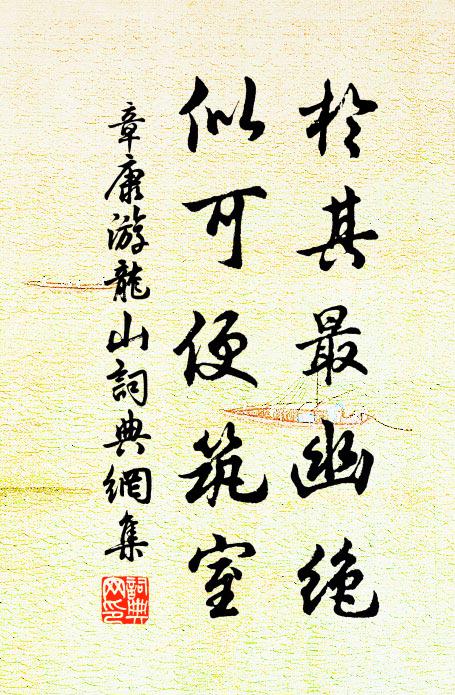 於其最幽绝
似可便筑室
章康游龍山詞典網集
詞典
网印